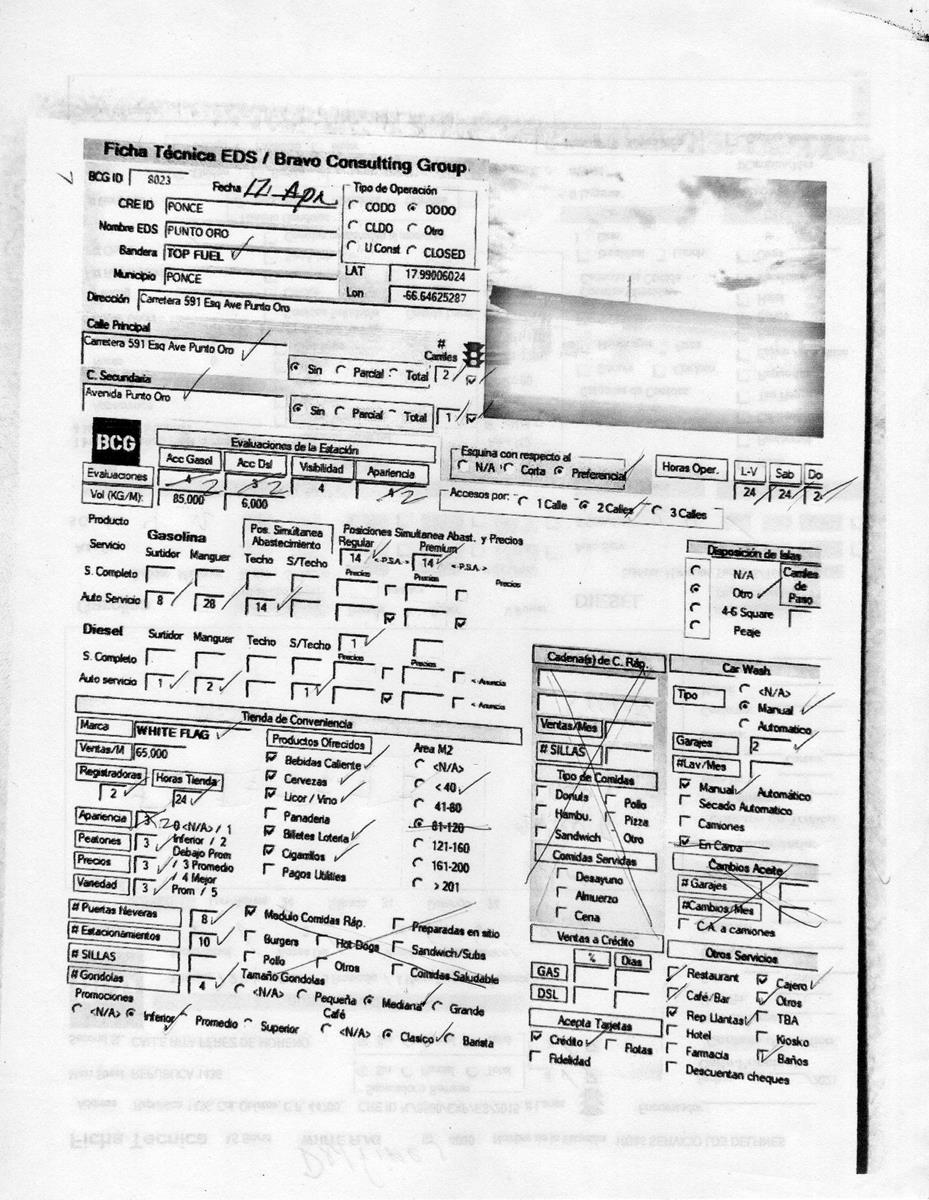 Ficha Técnica EDS / Bravo Consulting Group
BCG ID 8023 Fecha 17 Apr
CRE ID PONCE
Nombre EDS PUNTO ORO
Bandera TOP FUEL
Municipio PONCE
Dirección Carretera 591 Esq Ave Punto Oro
Tipo de Operación
CODO DODO
CLDO Otro
U Const CLOSED
LAT 17.99006024
Lon -66.64625287
Calle Principal
Carretera 591 Esq Ave Punto Oro
# Carriles
Sin Parcial Total 2
C. Secundaria
Avenida Punto Oro
Sin Parcial Total 1
BCG
Evaluaciones de la Estación
Acc Gasol Acc Dsl Visibilidad Apariencia
Evaluaciones 4 2 3 2 4 4 2
Vol (KG/M): 85,000 6,000
Esquina con respecto al
N/A Corta Preferencial
Accesos por: 1 Calle 2 Calles 3 Calles
Horas Oper. L-V Sab Do
24 24 2
Producto Gasolina
Pos. Simultánea Abastecimiento
Posiciones Simultanea Abast. y Precios
Regular Premium
14 <-P.S.A.-> 14 <-P.S.A.->
Servicio Surtidor Manguer Techo S/Techo Precios Precios Precios
S. Completo
Auto Servicio 8 28 14
Diesel Surtidor Manguer Techo S/Techo 1
Precios Precios
S. Completo <-Anuncia
Auto servicio 1 2 1 <-Anuncia
Disposición de Islas
N/A
Otro
4-6 Square
Peaje
Carriles de Paso
Tienda de Conveniencia
Marca WHITE FLAG
Ventas/M 65,000
Registradoras Horas Tienda
2 24
Apariencia 3 2 0 <N/A> / 1
Peatones 3 Inferior / 2
Precios 3 Debajo Prom / 3 Promedio
Variedad 3 / 4 Mejor Prom / 5
Productos Ofrecidos
Bebidas Caliente
Cervezas
Licor / Vino
Panaderia
Billetes Loteria
Cigarrillos
Pagos Utilities
Area M2
<N/A>
< 40
41-80
81-120
121-160
161-200
> 201
# Puertas Neveras 8
# Estacionamientos 10
# SILLAS
# Gondolas 4
Modulo Comidas Ráp.
Burgers Hot Dogs Preparadas en sitio
Pollo Otros Sandwich/Subs
Comidas Saludable
Tamaño Gondolas
<N/A> Pequeña Mediana Grande
Promociones
<N/A> Inferior Promedio Superior
Café
<N/A> Clasico Barista
Cadena(s) de C. Ráp.
Ventas/Mes
# SILLAS
Tipo de Comidas
Donuts Pollo
Hambu. Pizza
Sandwich Otro
Comidas Servidas
Desayuno
Almuerzo
Cena
Ventas a Crédito
% Dias
GAS
DSL
Acepta Tarjetas
Crédito Flotas
Fidelidad
Car Wash
Tipo <N/A>
Manual
Automatico
Garajes 2
#Lav/Mes
Manual Automático
Secado Automatico
Camiones
En Carpa
Cambios Aceite
# Garajes
#Cambios/Mes
C.A. a camiones
Otros Servicios
Restaurant Cajero
Café/Bar Otros
Rep Llantas TBA
Hotel Kiosko
Farmacia Baños
Descuentan cheques